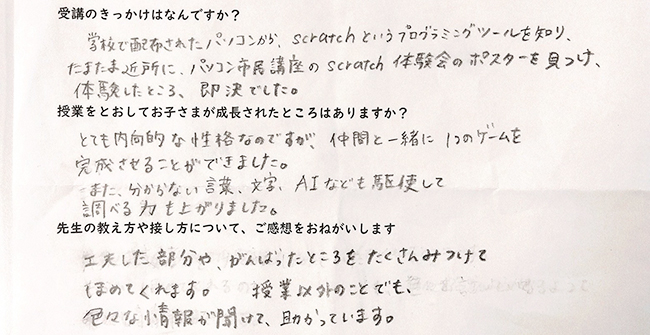 受講のきっかけはなんですか？
学校で配布されたパソコンから、scratchというプログラミングツールを知り、
たまたま近所に、パソコン市民講座のscratch体験会のポスターを見つけ、
体験したところ、即決でした。
授業をとおしてお子さまが成長されたところはありますか？
とても内向的な性格なのですが、仲間と一緒に1つのゲームを
完成させることができました。
また、分からない言葉、文字、AIなども駆使して
調べる力も上がりました。
先生の教え方や接し方について、ご感想をおねがいします
工夫した部分や、がんばったところをたくさんみつけて
ほめてくれます。 授業以外のことでも、
色々な情報が聞けて、助かっています。